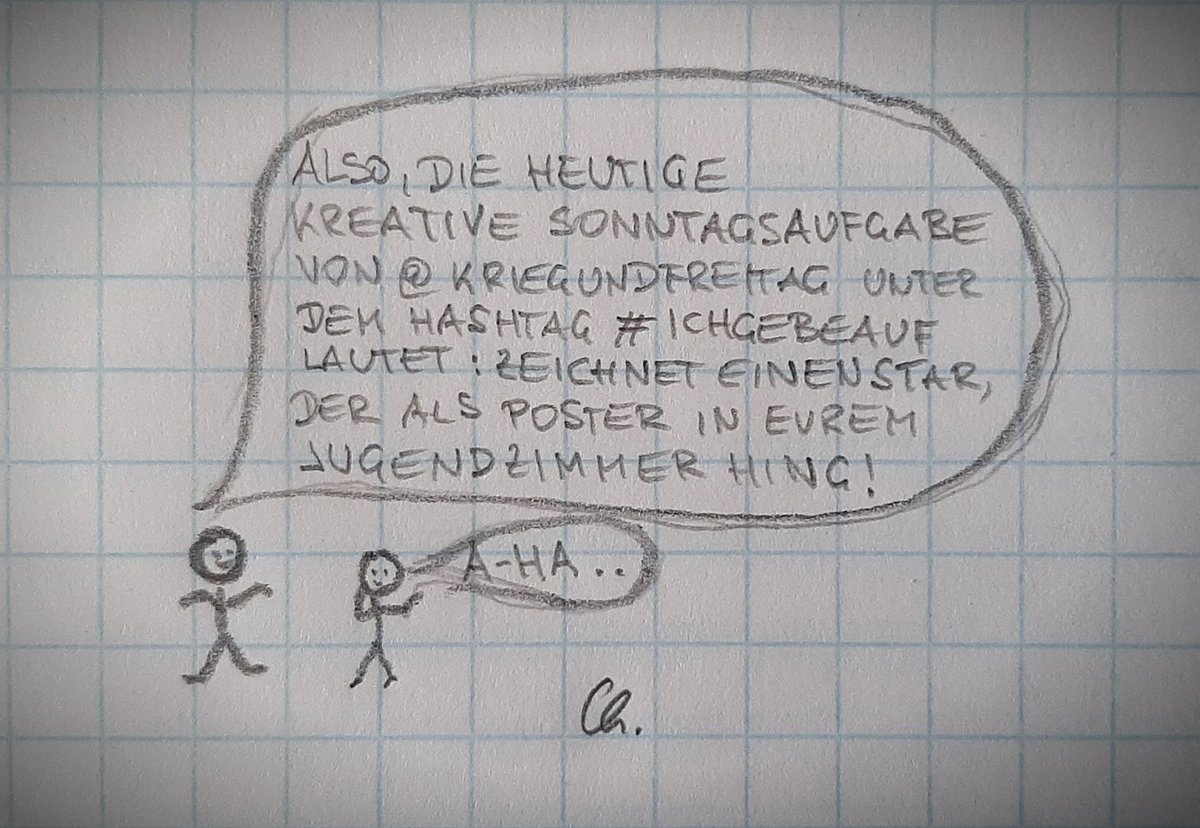 ALSO, DIE HEUTIGE
KREATIVE SONNTAGSAUFGABE
VON @KRIEGUNDFREITAG UNTER
DEM HASHTAG #ICHGEBEAUF
LAUTET: ZEICHNET EINEN STAR,
DER ALS POSTER IN EUREM
JUGENDZIMMER HING!
A-HA..
Ch.